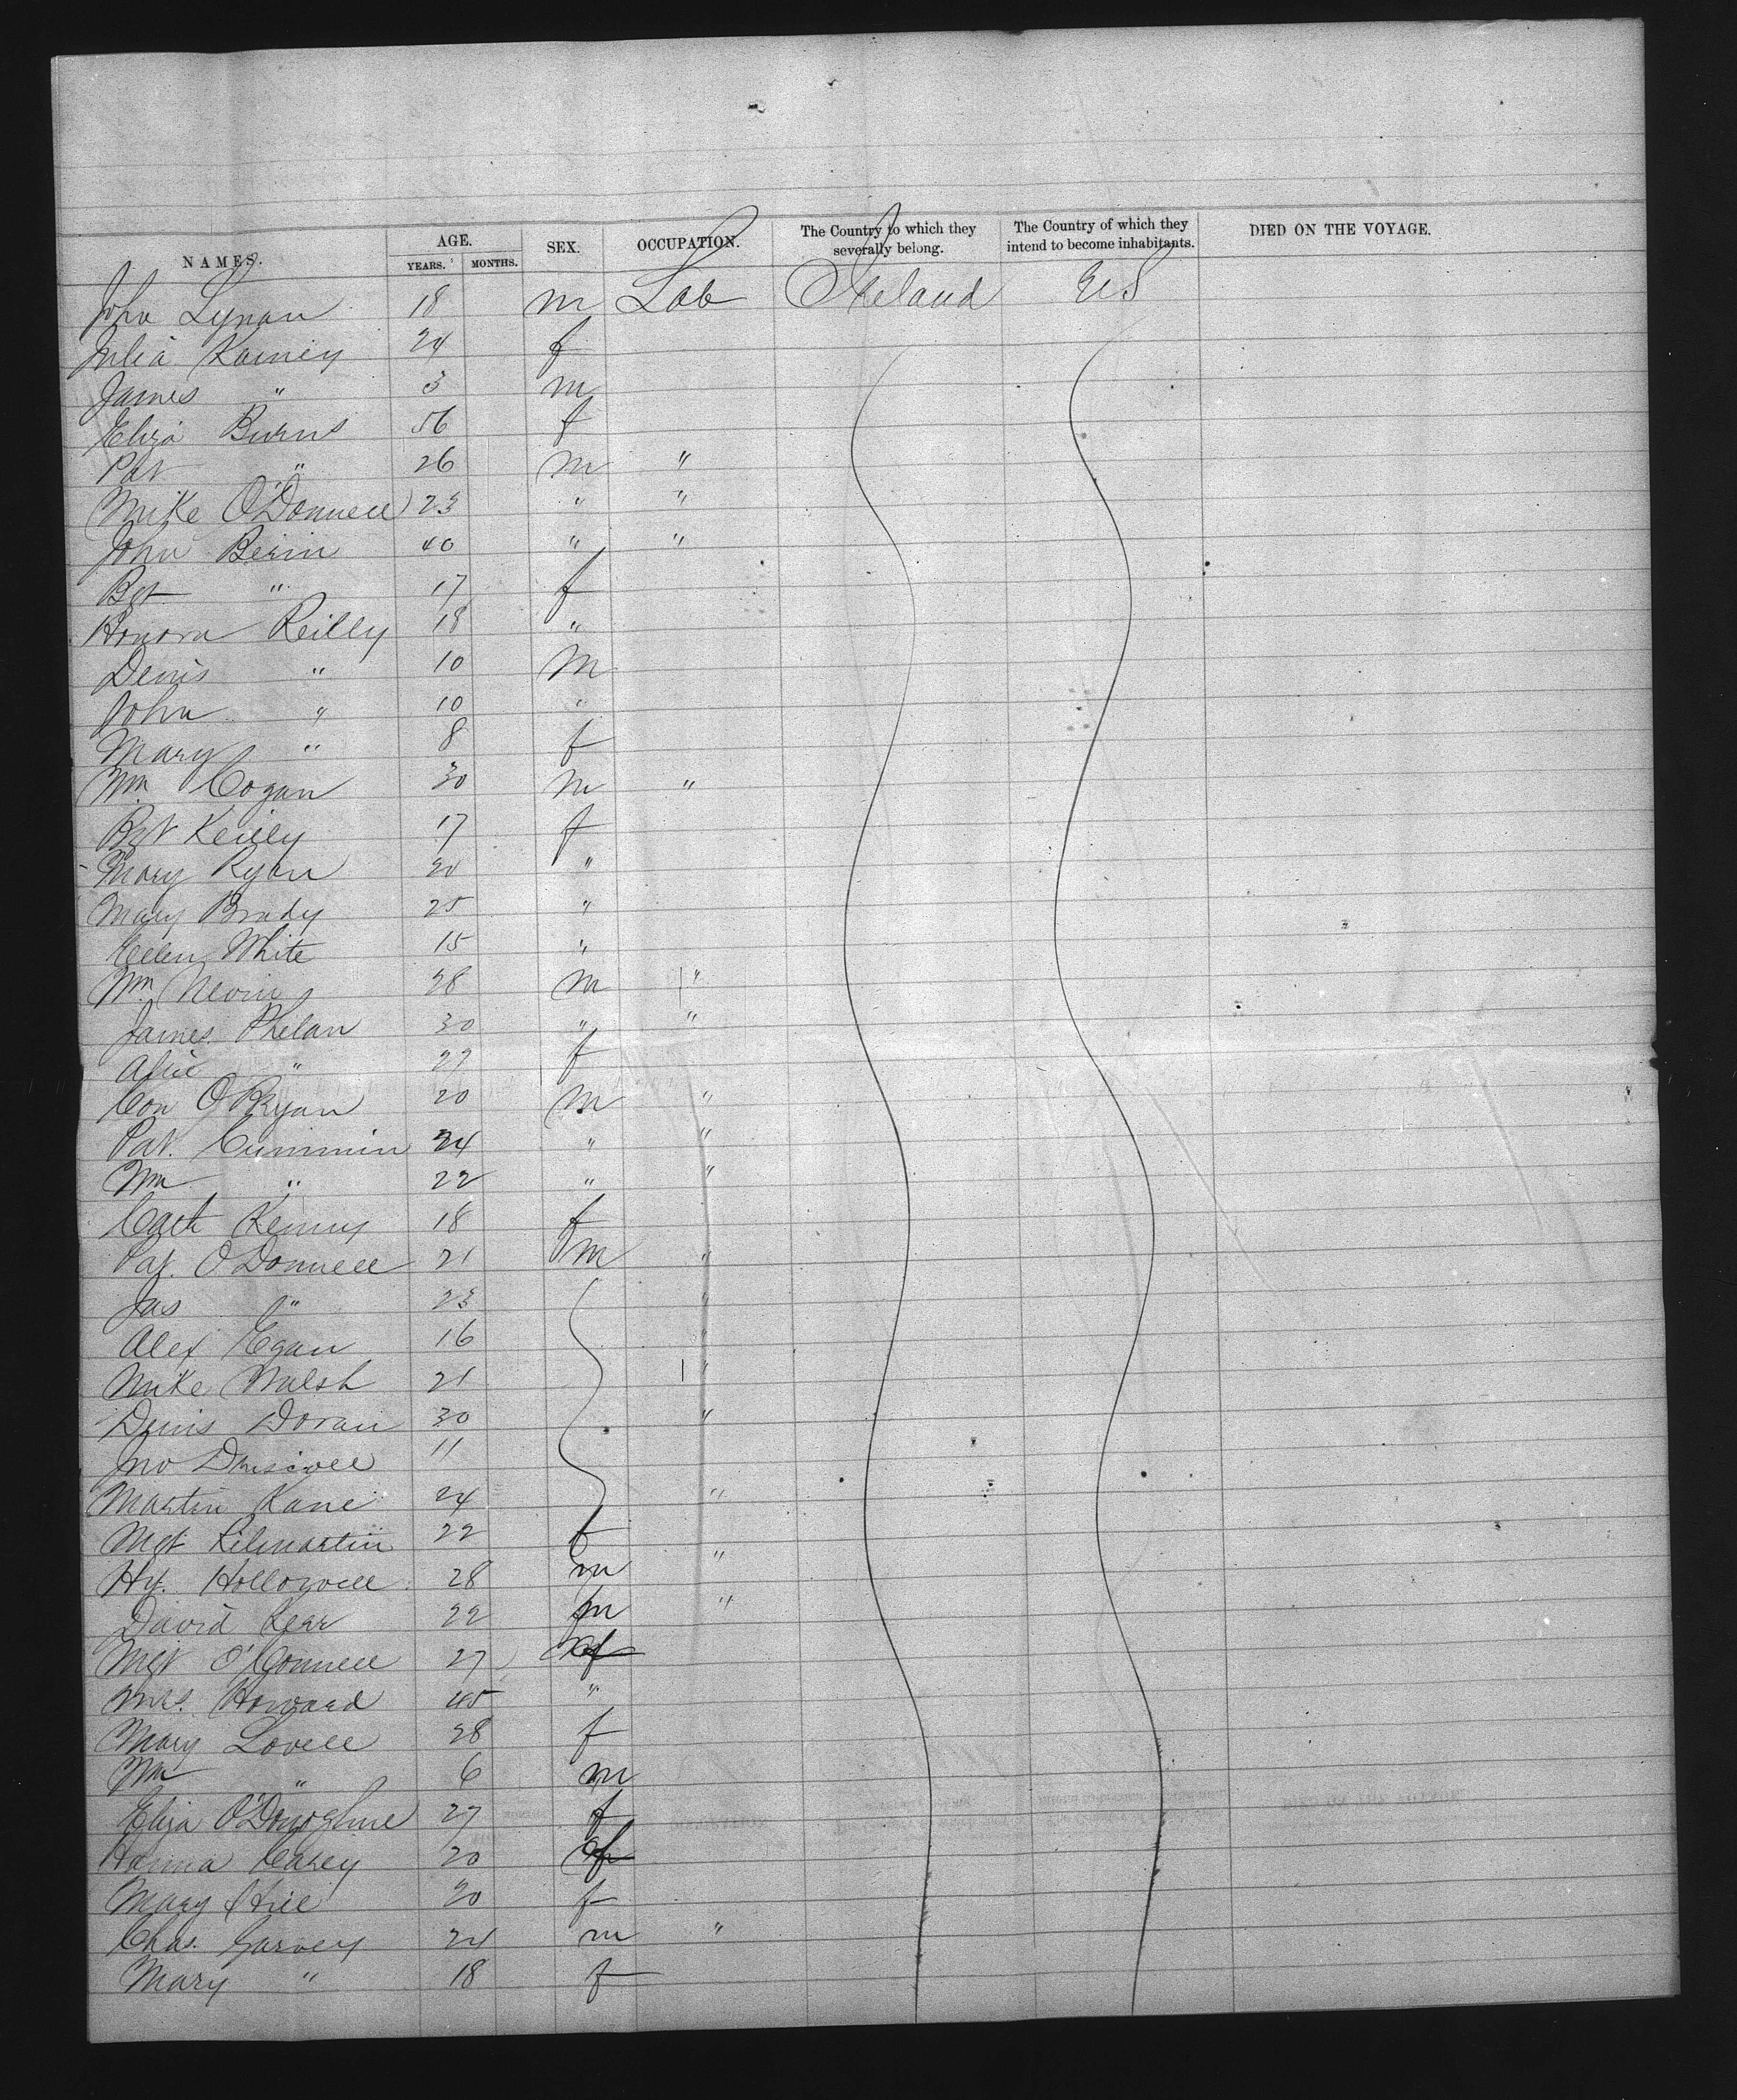 NAMES. AGE. YEARS. MONTHS. SEX. OCCUPATION. The Country to which they severally belong. The Country of which they intend to become inhabitants. DIED ON THE VOYAGE.
John Lynan 18 m Lab Ireland US
Julia 24 f
James " 3 m
Eliza Burns 56 f
Pat " 26 m "
Mike O'Donnell 23 " "
John 40 " "
Bgt " 17 f
Honora Reilly 18 "
Denis " 10 m
John " 10 "
Mary " 8 f
Wm Cogan 30 m "
Bgt 17 f
Mary Ryan 20 "
Mary Brady 25 "
Ellen White 15 "
Wm Nevin 28 m "
James Phelan 30 " "
Alice " 27 f
Con O'Ryan 20 m "
Pat. Cummin 24 " "
Wm " 22 " "
Cath Kenny 18 f
Pat. O'Donnell 21 m "
Jas " 23 "
Alex Egan 16 "
Mike Walsh 21 "
Denis Doran 30 "
Jno Driscoll 11
Martin Kane 24 "
Mgt Kilmartin 22 f
Hy. Hollowell 28 m "
David Kerr 22 m "
Mgt O'Connell 27 f
Mrs. Howard 45 "
Mary Lovell 28 f
Wm " 6 m
Eliza O'Donoghue 27 f
Hanna Casey 20 f
Mary Hill 20 f
Chas. Garvey 24 m "
Mary " 18 f